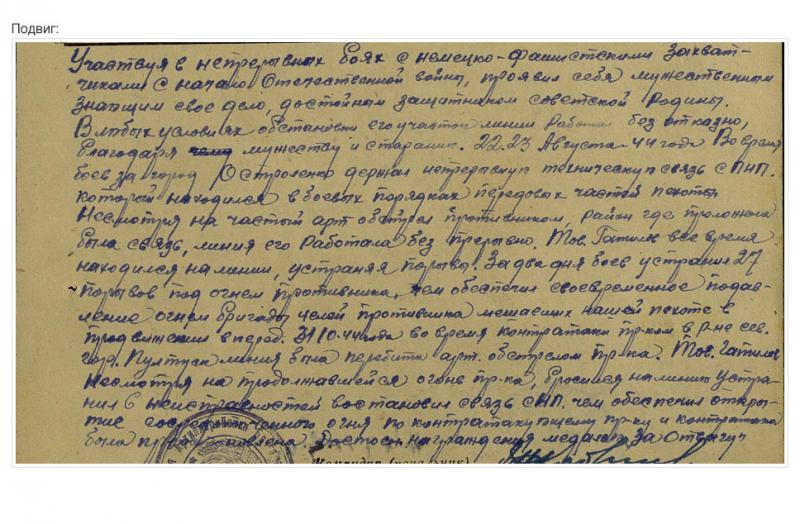 Подвиг:
Участвуя в непрерывных боях с немецко-фашистскими захват-
чиками с начало Отечественной войны, проявил себя мужественным
знающим свое дело, достойным защитником советской Родины.
В любых условиях обстановки его участок линии работал без отказно,
благодаря мужеству и старанию. 22.23 Августа-44 года Во время
боев за город Остроленко держал непрерывную техническую связь с ПНП.
который находился в боевых порядках передовых частей пехоты
Несмотря на частый арт обстрел противником, район где проложена
была связь, линия его работала без прерывно. Тов. Гатилов все время
находился на линии, устраняя порывы. За два дня боев устранил 27
порывов под огнем противника, чем обеспечил своевременное подав-
ление огнем бригады целей противника мешавших нашей пехоте в
продвижении вперед. 31 10.44 года во время контратаки пр-ком в р-не сев.
гор. Пултуск линия была перебита арт. обстрелом пр-ка. Тов. Гатилов
несмотря на продолжавшейся огонь пр-ка, бросился на линию устра-
нил 6 неисправностей востановил связь с НП. чем обеспечил откры-
тие сосредоточенного огня по контратакующему пр-ку и контратака
была приостановлена. Достоин награждения медалью "За Отвагу"
Командир (начальник)